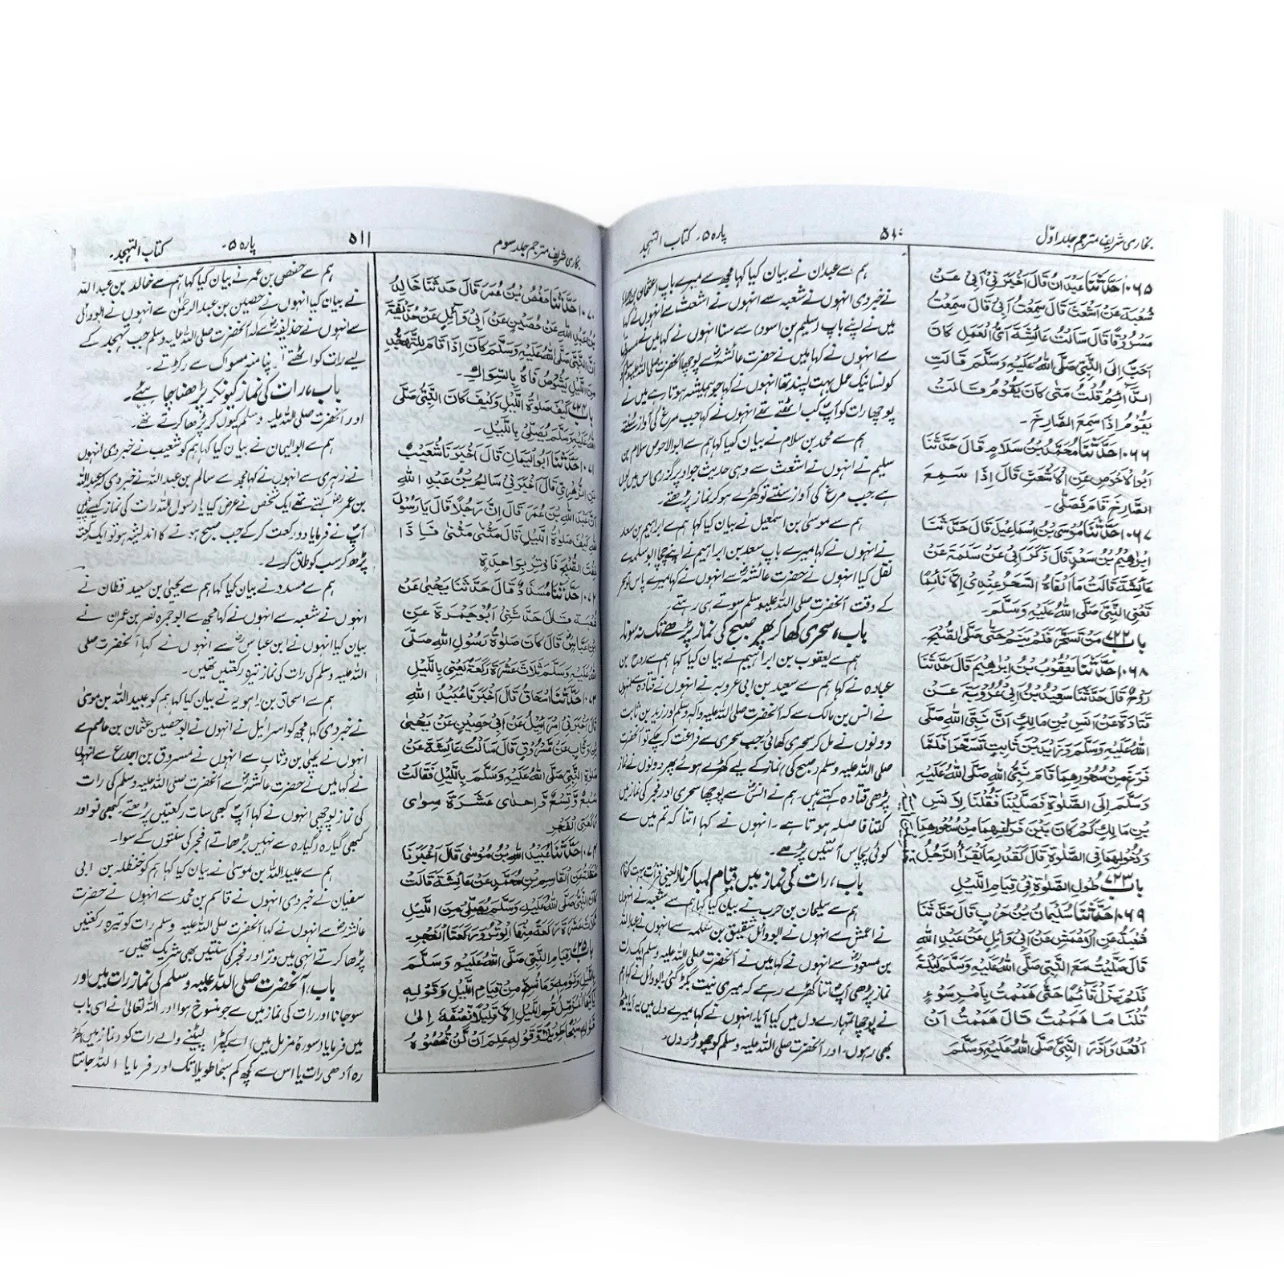 بخاری شریف مترجم جلد اوّل
۵۱۰
پارہ ۵۔ کتاب التہجد
۱۰۶۵ حَدَّثَنَا عَبْدَانُ قَالَ أَخْبَرَنِي أَبِي عَنْ
شُعْبَةَ عَنْ أَشْعَثَ قَالَ سَمِعْتُ أَبِي قَالَ سَمِعْتُ
مَسْرُوقًا قَالَ سَأَلْتُ عَائِشَةَ أَيُّ الْعَمَلِ كَانَ
أَحَبَّ إِلَى النَّبِيِّ صَلَّى اللهُ عَلَيْهِ وَسَلَّمَ قَالَتْ
الدَّائِمُ قُلْتُ مَتَى كَانَ يَقُوْمُ قَالَتْ
يَقُوْمُ إِذَا سَمِعَ الصَّارِخَ۔
۱۰۶۶ حَدَّثَنَا مُحَمَّدُ بْنُ سَلَامٍ قَالَ حَدَّثَنَا
أَبُو الْأَحْوَصِ عَنِ الْأَشْعَثِ قَالَ إِذَا سَمِعَ
الصَّارِخَ قَامَ فَصَلَّى۔
۱۰۶۷ حَدَّثَنَا مُوْسَى بْنُ إِسْمَاعِيلَ قَالَ حَدَّثَنَا
إِبْرَاهِيمُ بْنُ سَعْدٍ قَالَ ذَكَرَ أَبِي عَنْ سَلَمَةَ عَنْ
عَائِشَةَ قَالَتْ مَا أَلْفَاهُ السَّحَرُ عِنْدِي إِلَّا نَائِمًا
تَعْنِي النَّبِيَّ صَلَّى اللهُ عَلَيْهِ وَسَلَّمَ۔
باب ۷۲۲ مَنْ تَسَحَّرَ فَلَمْ يَنَمْ حَتَّى صَلَّى الصُّبْحَ۔
۱۰۶۸ حَدَّثَنَا يَعْقُوبُ بْنُ إِبْرَاهِيمَ قَالَ حَدَّثَنَا
رَوْحٌ قَالَ حَدَّثَنَا سَعِيدُ بْنُ أَبِي عَرُوبَةَ عَنْ
قَتَادَةَ عَنْ أَنَسِ بْنِ مَالِكٍ أَنَّ نَبِيَّ اللهِ صَلَّى
اللهُ عَلَيْهِ وَسَلَّمَ وَزَيْدَ بْنَ ثَابِتٍ تَسَحَّرَا فَلَمَّا
فَرَغَا مِنْ سُحُورِهِمَا قَامَ نَبِيُّ اللهِ صَلَّى اللهُ عَلَيْهِ
وَسَلَّمَ إِلَى الصَّلَوةِ فَصَلَّيْنَا فَقُلْنَا لِأَنَسِ
بْنِ مَالِكٍ كَمْ كَانَ بَيْنَ فَرَاغِهِمَا مِنْ سُحُورِهِمَا
وَدُخُولِهِمَا فِي الصَّلَوةِ قَالَ كَقَدْرِ مَا يَقْرَأُ الرَّجُلُ
باب ۷۲۳ طُولِ الصَّلَوةِ فِي قِيَامِ اللَّيْلِ
۱۰۶۹ حَدَّثَنَا سُلَيْمَانُ بْنُ حَرْبٍ قَالَ حَدَّثَنَا
شُعْبَةُ عَنِ الْأَعْمَشِ عَنْ أَبِي وَائِلٍ عَنْ عَبْدِ اللهِ
قَالَ صَلَّيْتُ مَعَ النَّبِيِّ صَلَّى اللهُ عَلَيْهِ وَسَلَّمَ لَيْلَةً
فَلَمْ يَزَلْ قَائِمًا حَتَّى هَمَمْتُ بِأَمْرِ سَوْءٍ
قُلْنَا مَا هَمَمْتَ قَالَ هَمَمْتُ أَنْ
أَقْعُدَ وَأَذَرَ النَّبِيَّ صَلَّى اللهُ عَلَيْهِ وَسَلَّمَ
ہم سے عبدان نے بیان کیا کہا مجھ سے میرے باپ
نے خبر دی انہوں نے شعبہ سے انہوں نے اشعث سے انہوں نے کہا
میں نے اپنے باپ (سلیم بن اسود) سے سنا انہوں نے کہا میں نے مسروق
سے انہوں نے کہا میں نے حضرت عائشہؓ سے پوچھا آنحضرت صلی اللہ علیہ وسلم
کو نسا نیک عمل بہت پسند تھا انہوں نے کہا جو ہمیشہ ہوتا رہے میں نے
پوچھا رات کو آپ کب اٹھتے تھے انہوں نے کہا جب مرغ کی آواز سنتے
ہم سے محمد بن سلام نے بیان کیا کہا ہم سے ابوالاحوص سلام بن
سلیم نے انہوں نے اشعث سے وہی حدیث جو اوپر گذری اس میں یوں
ہے جب مرغ کی آواز سنتے تو کھڑے ہو کر نماز پڑھتے۔
ہم سے موسٰی بن اسمعیل نے بیان کیا کہا ہم سے ابراہیم بن سعد
نے انہوں نے کہا میرے باپ سعد بن ابراہیم نے اپنے چچا ابوسلمہ سے
نقل کیا انہوں نے حضرت عائشہؓ سے انہوں نے کہا میرے پاس تو سحر
کے وقت آنحضرت صلی اللہ علیہ وسلم سوتے ہی رہتے۔
باب، سحری کھا کر پھر صبح کی نماز پڑھنے تک نہ سونا۔
ہم سے یعقوب بن ابراہیم نے بیان کیا کہا ہم سے روح بن
عبادہ نے کہا ہم سے سعید بن ابی عروبہ نے انہوں نے قتادہ سے انہوں
نے انس بن مالک سے کہ آنحضرت صلی اللہ علیہ وآلہ وسلم اور زید بن ثابت
دونوں نے مل کر سحری کھائی جب سحری سے فراغت کر چکے تو آنحضرت
صلی اللہ علیہ وسلم (صبح کی) نماز کے لیے کھڑے ہوئے پھر دونوں نے نماز
پڑھی قتادہ کہتے ہیں ہم نے انسؓ سے پوچھا سحری اور فجر کی نماز میں
کتنا فاصلہ ہوتا ہے۔ انہوں نے کہا اتنا کہ تم میں سے
کوئی پچاس آیتیں پڑھے۔
باب، رات کی نماز میں قیام لمبا کرنا (یعنی قرأت بہت کرنا)
ہم سے سلیمان بن حرب نے بیان کیا کہا ہم سے شعبہ نے انہوں
نے اعمش سے انہوں نے ابووائل شقیق بن سلمہ سے انہوں نے عبداللہ
بن مسعودؓ سے انہوں نے کہا میں نے آنحضرت صلی اللہ علیہ وسلم ایک رات
نماز پڑھی آپ اتنا کھڑے رہے کہ میری نیت بگڑ گئی ابووائل نے کہا ہم
نے پوچھا تمہارے دل میں کیا آیا، انہوں نے کہا میرے دل میں یہ آیا بیٹھ
بھی رہوں۔ اور آنحضرت صلی اللہ علیہ وسلم کو چھوڑ دوں۔
بخاری شریف مترجم جلد سوم
۵۱۱
پارہ ۵۔
کتاب التہجد۔
۱۰۷۰ حَدَّثَنَا حَفْصُ بْنُ عُمَرَ قَالَ حَدَّثَنَا خَالِدُ
بْنُ عَبْدِ اللهِ عَنْ حُصَيْنٍ عَنْ أَبِي وَائِلٍ عَنْ حُذَيْفَةَ
أَنَّ النَّبِيَّ صَلَّى اللهُ عَلَيْهِ وَسَلَّمَ كَانَ إِذَا قَامَ لِلتَّهَجُّدِ
مِنَ اللَّيْلِ يَشُوْصُ فَاهُ بِالسِّوَاكِ۔
باب ۷۲۴ كَيْفَ صَلَوةُ اللَّيْلِ وَكَيْفَ كَانَ النَّبِيُّ صَلَّى
اللهُ عَلَيْهِ وَسَلَّمَ يُصَلِّي بِاللَّيْلِ۔
۱۰۷۱ حَدَّثَنَا أَبُو الْيَمَانِ قَالَ أَخْبَرَنَا شُعَيْبٌ
عَنِ الزُّهْرِيِّ قَالَ أَخْبَرَنِي سَالِمُ بْنُ عَبْدِ اللهِ
أَنَّ عَبْدَ اللهِ بْنَ عُمَرَ قَالَ إِنَّ رَجُلًا قَالَ يَا رَسُوْلَ
اللهِ كَيْفَ صَلَوةُ اللَّيْلِ قَالَ مَثْنَى مَثْنَى فَإِذَا
خِفْتَ الصُّبْحَ فَأَوْتِرْ بِوَاحِدَةٍ
۱۰۷۲ حَدَّثَنَا مُسَدَّدٌ قَالَ حَدَّثَنَا يَحْيَى عَنْ
شُعْبَةَ قَالَ حَدَّثَنِي أَبُو جَمْرَةَ عَنِ
ابْنِ عَبَّاسٍ قَالَ كَانَ صَلَوةُ رَسُوْلِ اللهِ صَلَّى
اللهُ عَلَيْهِ وَسَلَّمَ ثَلَاثَ عَشْرَةَ رَكْعَةً يَعْنِي بِاللَّيْلِ
۱۰۷۳ حَدَّثَنَا إِسْحَاقُ قَالَ أَخْبَرَنَا عُبَيْدُ اللهِ
قَالَ أَخْبَرَنِي إِسْرَائِيلُ عَنْ أَبِي حَصِينٍ عَنْ يَحْيَى
بْنِ وَثَّابٍ عَنْ مَسْرُوْقٍ قَالَ سَأَلْتُ عَائِشَةَ عَنْ
صَلَوةِ النَّبِيِّ صَلَّى اللهُ عَلَيْهِ وَسَلَّمَ بِاللَّيْلِ فَقَالَتْ
سَبْعٌ وَتِسْعٌ وَإِحْدَى عَشْرَةَ سِوَى
رَكْعَتَيِ الْفَجْرِ
۱۰۷۴ حَدَّثَنَا عُبَيْدُ اللهِ بْنُ مُوْسَى قَالَ أَخْبَرَنَا
حَنْظَلَةُ عَنِ الْقَاسِمِ بْنِ مُحَمَّدٍ عَنْ عَائِشَةَ قَالَتْ
كَانَ النَّبِيُّ صَلَّى اللهُ عَلَيْهِ وَسَلَّمَ يُصَلِّي مِنَ اللَّيْلِ
ثَلَاثَ عَشْرَةَ رَكْعَةً مِنْهَا الْوِتْرُ وَرَكْعَتَا الْفَجْرِ۔
باب ۷۲۵ قِيَامِ النَّبِيِّ صَلَّى اللهُ عَلَيْهِ وَسَلَّمَ
بِاللَّيْلِ وَنَوْمِهِ وَمَا نُسِخَ مِنْ قِيَامِ اللَّيْلِ وَقَوْلِهِ
يَا أَيُّهَا الْمُزَّمِّلُ قُمِ اللَّيْلَ إِلَّا قَلِيلًا نِصْفَهُ إِلَى
قَوْلِهِ سَبْحًا طَوِيلًا وَقَوْلِهِ عَلِمَ أَنْ لَنْ تُحْصُوهُ
ہم سے حفص بن عمر نے بیان کیا کہا ہم سے خالد بن عبداللہ
نے بیان کیا انہوں نے حصین بن عبدالرحمٰن سے انہوں نے ابووائل
سے انہوں نے حذیفہؓ سے کہ آنحضرت صلی اللہ علیہ وسلم جب تہجد کے
لیے رات کو اٹھتے اپنا منہ مسواک سے رگڑتے۔
باب، رات کی نماز کیونکر پڑھنا چاہئے۔
اور آنحضرت صلی اللہ علیہ وسلم کیوں کر پڑھا کرتے تھے۔
ہم سے ابوالیمان نے بیان کیا کہا ہم کو شعیب نے خبر دی انہوں
نے زہری سے انہوں نے کہا مجھ سے سالم بن عبداللہ نے خبر دی کہ عبداللہ
بن عمرؓ کہتے تھے ایک شخص نے عرض کیا یا رسول اللہ رات کی نماز کیسے پڑھیں
آپ نے فرمایا دو دو رکعت کر کے جب صبح ہونے کا اندیشہ ہو تو ایک رکعت
پڑھ کر سب کو طاق کرلے۔
ہم سے مسدد نے بیان کیا کہا ہم سے یحیٰی بن سعید قطان نے
انہوں نے شعبہ سے انہوں نے کہا مجھ سے ابوجمرہ نصر بن عمران نے
بیان کیا انہوں نے ابن عباسؓ سے انہوں نے کہا آنحضرت صلی
اللہ علیہ وسلم کی رات کی نماز تیرہ رکعتیں تھیں۔
ہم سے اسحاق بن راہویہ نے بیان کیا کہا ہم کو عبیداللہ بن موسٰی
نے خبر دی کہا مجھ کو اسرائیل نے انہوں نے ابوحصین عثمان بن عاصم سے
انہوں نے یحٰیی بن وثاب سے انہوں نے مسروق بن اجدع سے انہوں
نے کہا میں نے حضرت عائشہؓ سے آنحضرت صلی اللہ علیہ وسلم کی رات
کی نماز پوچھی انہوں نے کہا آپ کبھی سات رکعتیں پڑھتے کبھی نو اور
کبھی گیارہ (گیارہ سے نہیں بڑھاتے) فجر کی سنتوں کے سوا۔
ہم سے عبیداللہ بن موسٰی نے بیان کیا کہا ہم کو حنظلہ بن ابی
سفیان نے خبر دی انہوں نے قاسم بن محمد سے انہوں نے حضرت
عائشہؓ سے انہوں نے کہا آنحضرت صلی اللہ علیہ وسلم رات کو تیرہ رکعتیں
پڑھا کرتے انہی میں وتر اور فجر کی سنتیں بھی شریک تھیں۔
باب، آنحضرت صلی اللہ علیہ وسلم کی نماز رات میں اور
سو جانا اور رات کی نماز میں سے جو منسوخ ہوا اور اللہ تعالٰی نے اسی باب
میں فرمایا (سورۂ مزمل میں) اے کپڑا لپیٹنے والے رات کو (نماز میں) کھڑا
رہ آدھی رات یا اس سے کچھ کم سبحا طویلا تک اور فرمایا اللہ جانتا